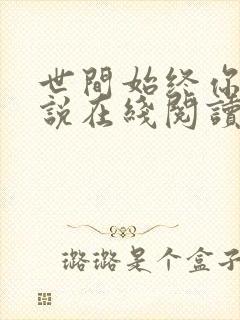 世間始终你
說在綫閱讀
璐璐是个盒子